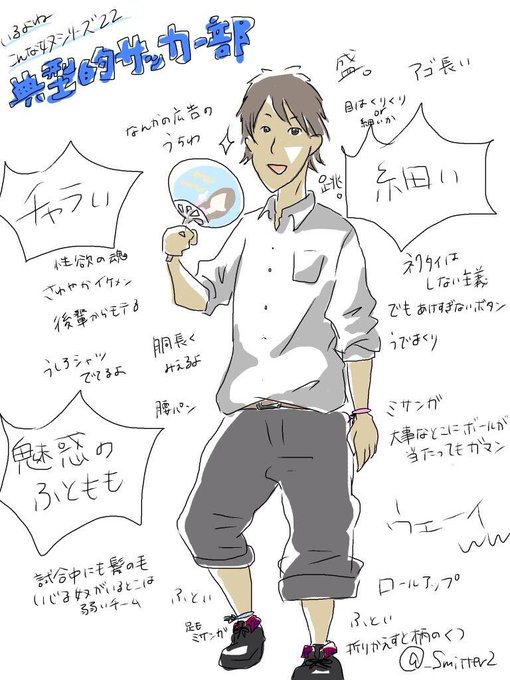 いるよね
こんな奴シリーズ22
典型的サッカー部
盛。
アゴ長い
目はくりくり
or
細いか
なんかの広告の
うちわ
跳。
細い
チャラい
性欲の魂
さわやかイケメン
後輩からモテる
ネクタイは
しない主義
でもあけすぎないボタン
うでまくり
うしろシャツ
でてるよ
胴長く
みえるよ
腰パン
ミサンガ
大事なとこにボールが
当たってもガマン
魅惑の
ふともも
ウェーイ
ww
試合中にも髪の毛
いじる奴がいるとこは
弱いチーム
ロールアップ
ふとい
ふとい
足も
ミサンガ
折りかえすと柄のくつ
@_Smitter2